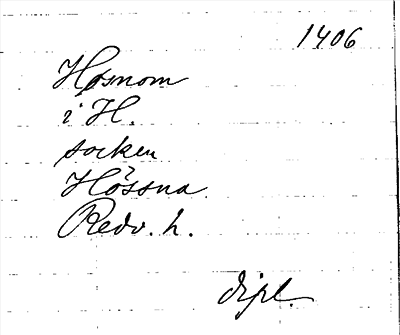 1406
Høsnom
i H.
socken
Hössna
Redv. h.
dipl.